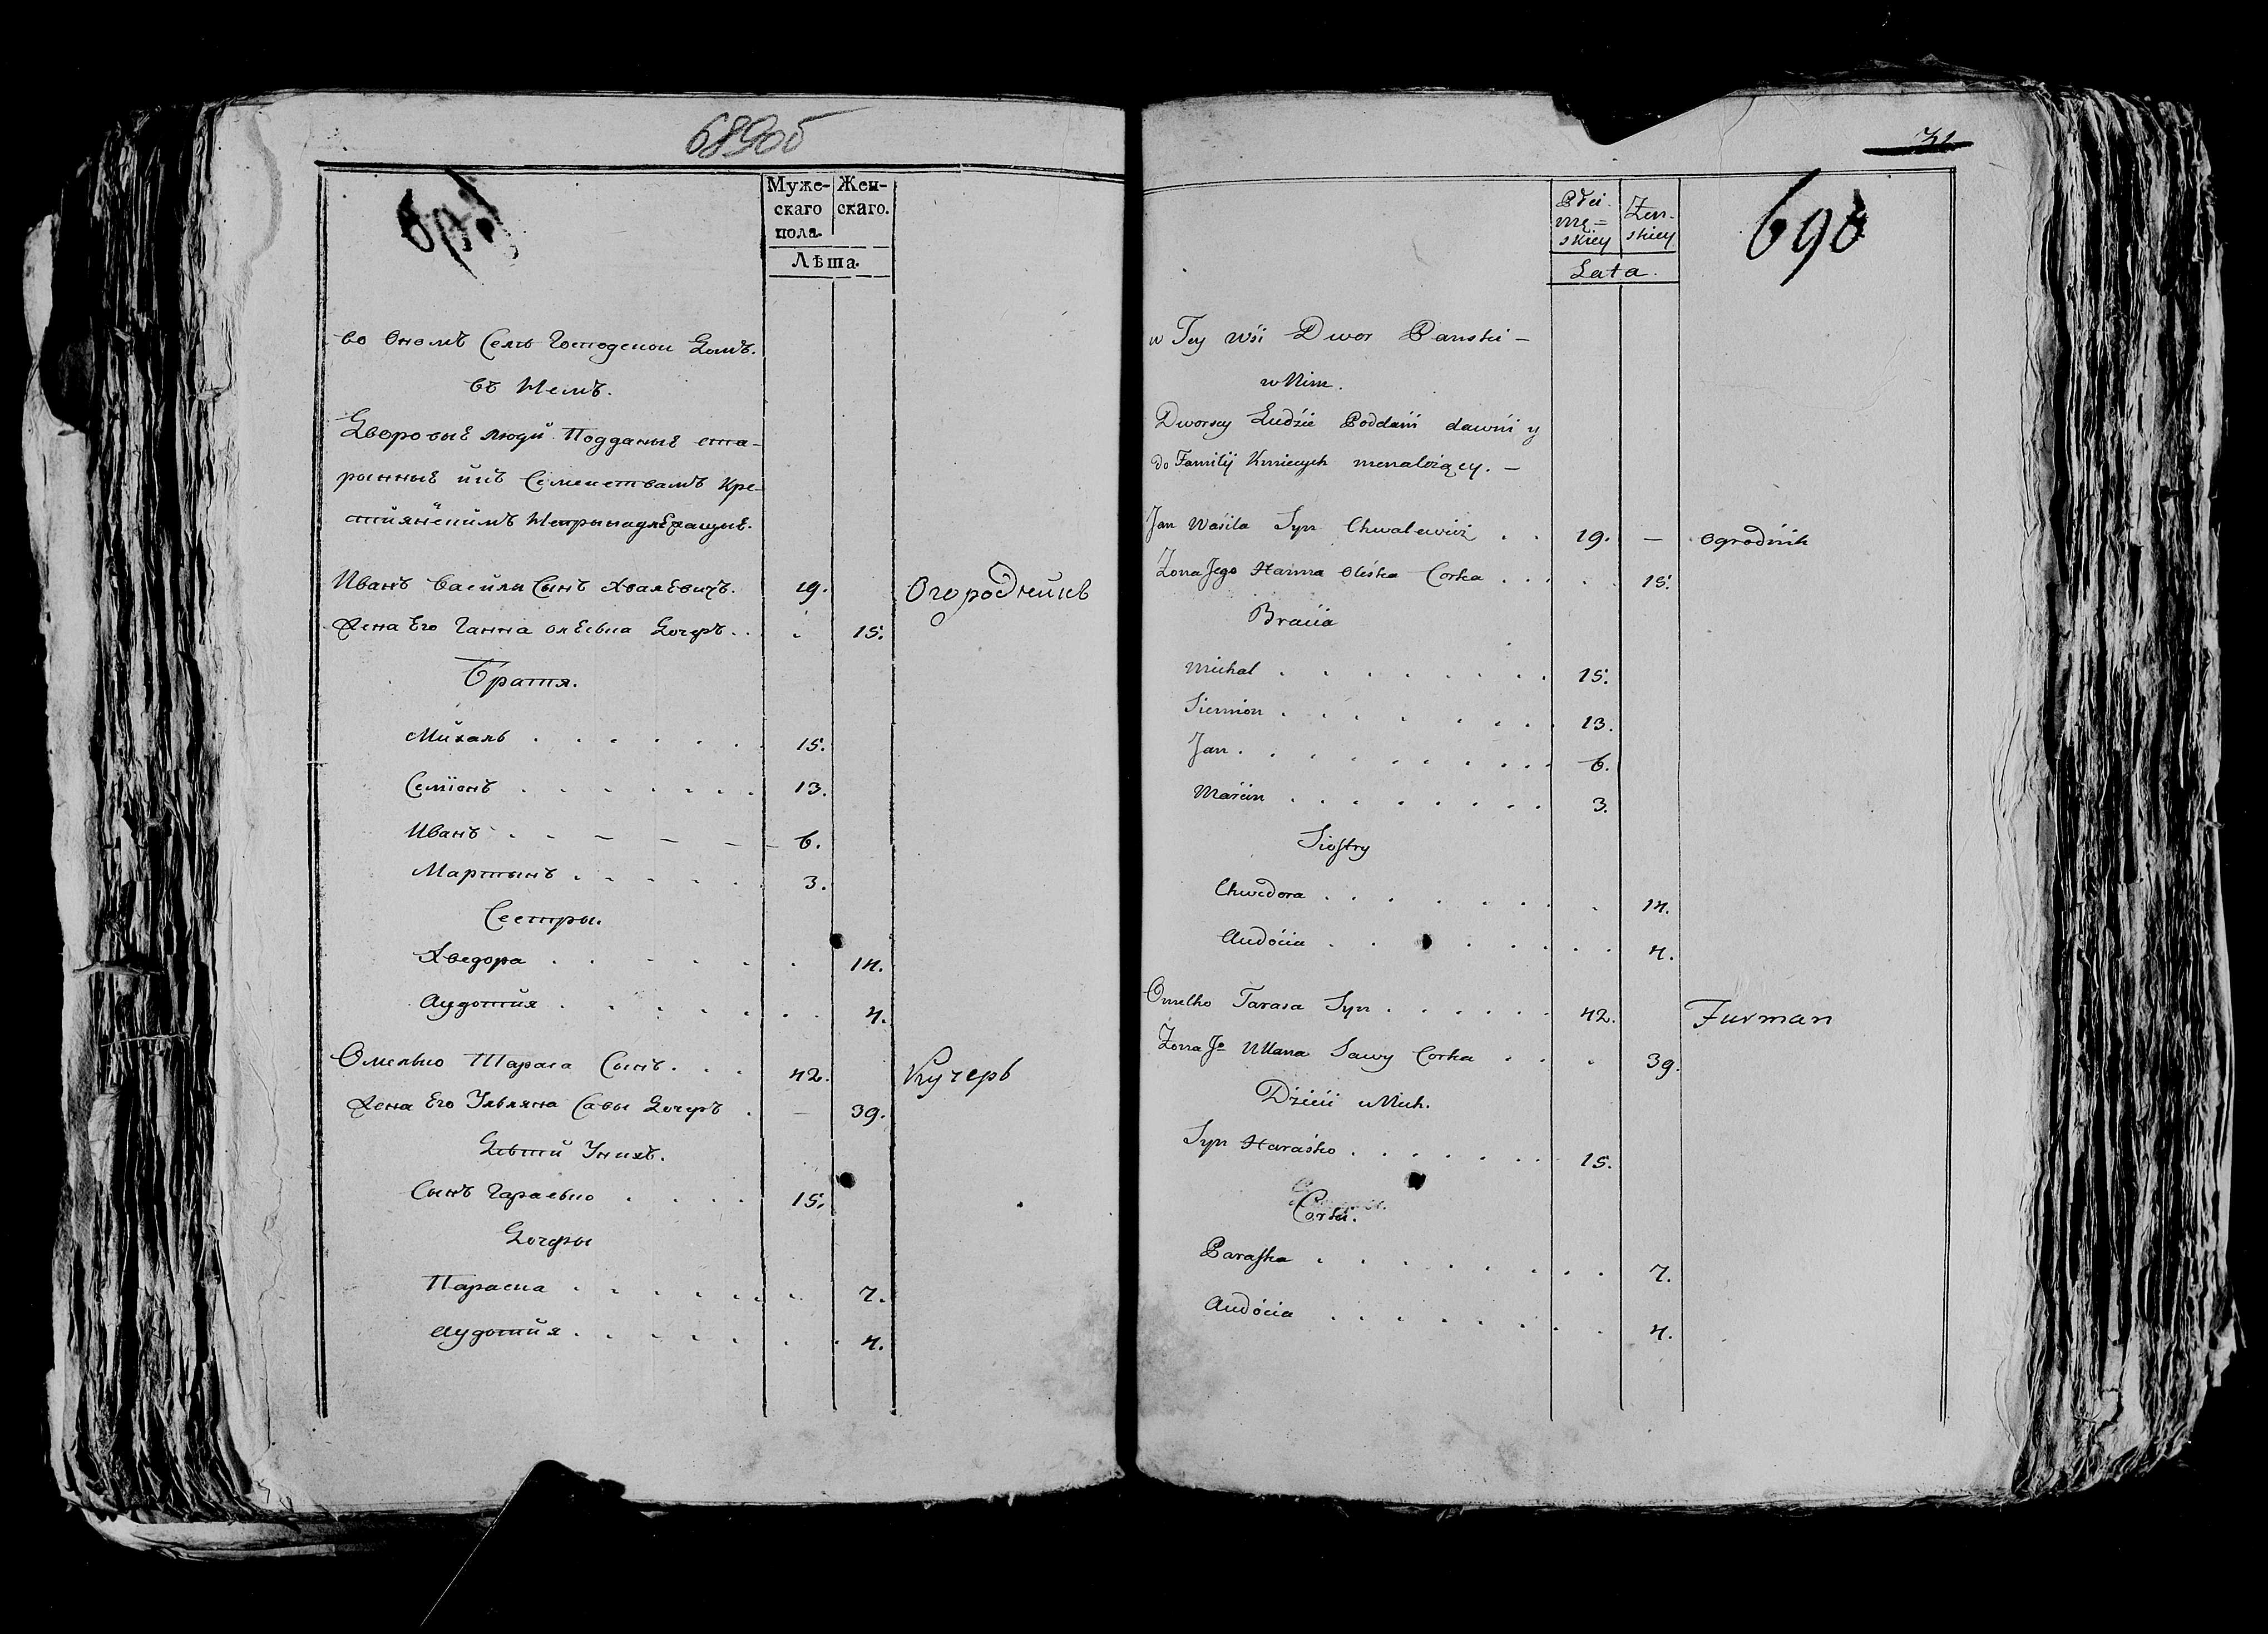 689об
Муже-
скаго
пола.
Жен-
скаго.
Лѣта.
Во ономъ Селѣ Господскои Домъ.
въ Немъ.
Дворовые люди Подданые ста-
ринные ййъ Семеиствамъ Кре-
стйянскимъ Непринадлежащые.
Иванъ Васйля Сынъ Хвалевичъ. 19. Огороднйкъ
Жена Его Ганна олеська Дочеръ . . 15.
Братя.
Мйхаль . . . . . . 15.
Семіонъ . . . . . . 13.
Иванъ . . . . . . 6.
Мартынъ . . . . . 3.
Сестры.
Хведора . . . . . . 14.
Аудотйя . . . . . . 4.
Омелько Тараса Сынъ . . . 42. Кучеръ
Жена Его Ульяна Савы Дочеръ . — 39.
Дѣтй Унихъ.
Сынъ Гарасько . . . . 15.
Дочеры
Параска . . . . . . 7.
Аудотйя . . . . . . 4.
31
690
Płci
mę=
skiey
Żen-
skiey
Lata.
w Tey Wśi Dwor Panski —
w Nim.
Dworscy Ludźie Poddani dawni y
do Familij Kmiecych nienależący. —
Jan Wasila Syn Chwalewicz . . 19. — Ogrodnik
Zona Jego Hanna Oleska Corka . . . . 15.
Bracia
Michal . . . . . . . 15.
Siemion . . . . . . . 13.
Jan . . . . . . . . 6.
Marcin . . . . . . . 3.
Siostry
Chwedora . . . . . . . 14.
Audocia . . . . . . . 4.
Omelko Tarasa Syn . . . . . . 42. Furman
Zona Jo Ullana Sawy Corka . . . 39.
Dzieci u Nich.
Syn Harasko . . . . . . . 15.
Corki.
Paraska . . . . . . . . 7.
Audocia . . . . . . . . 4.